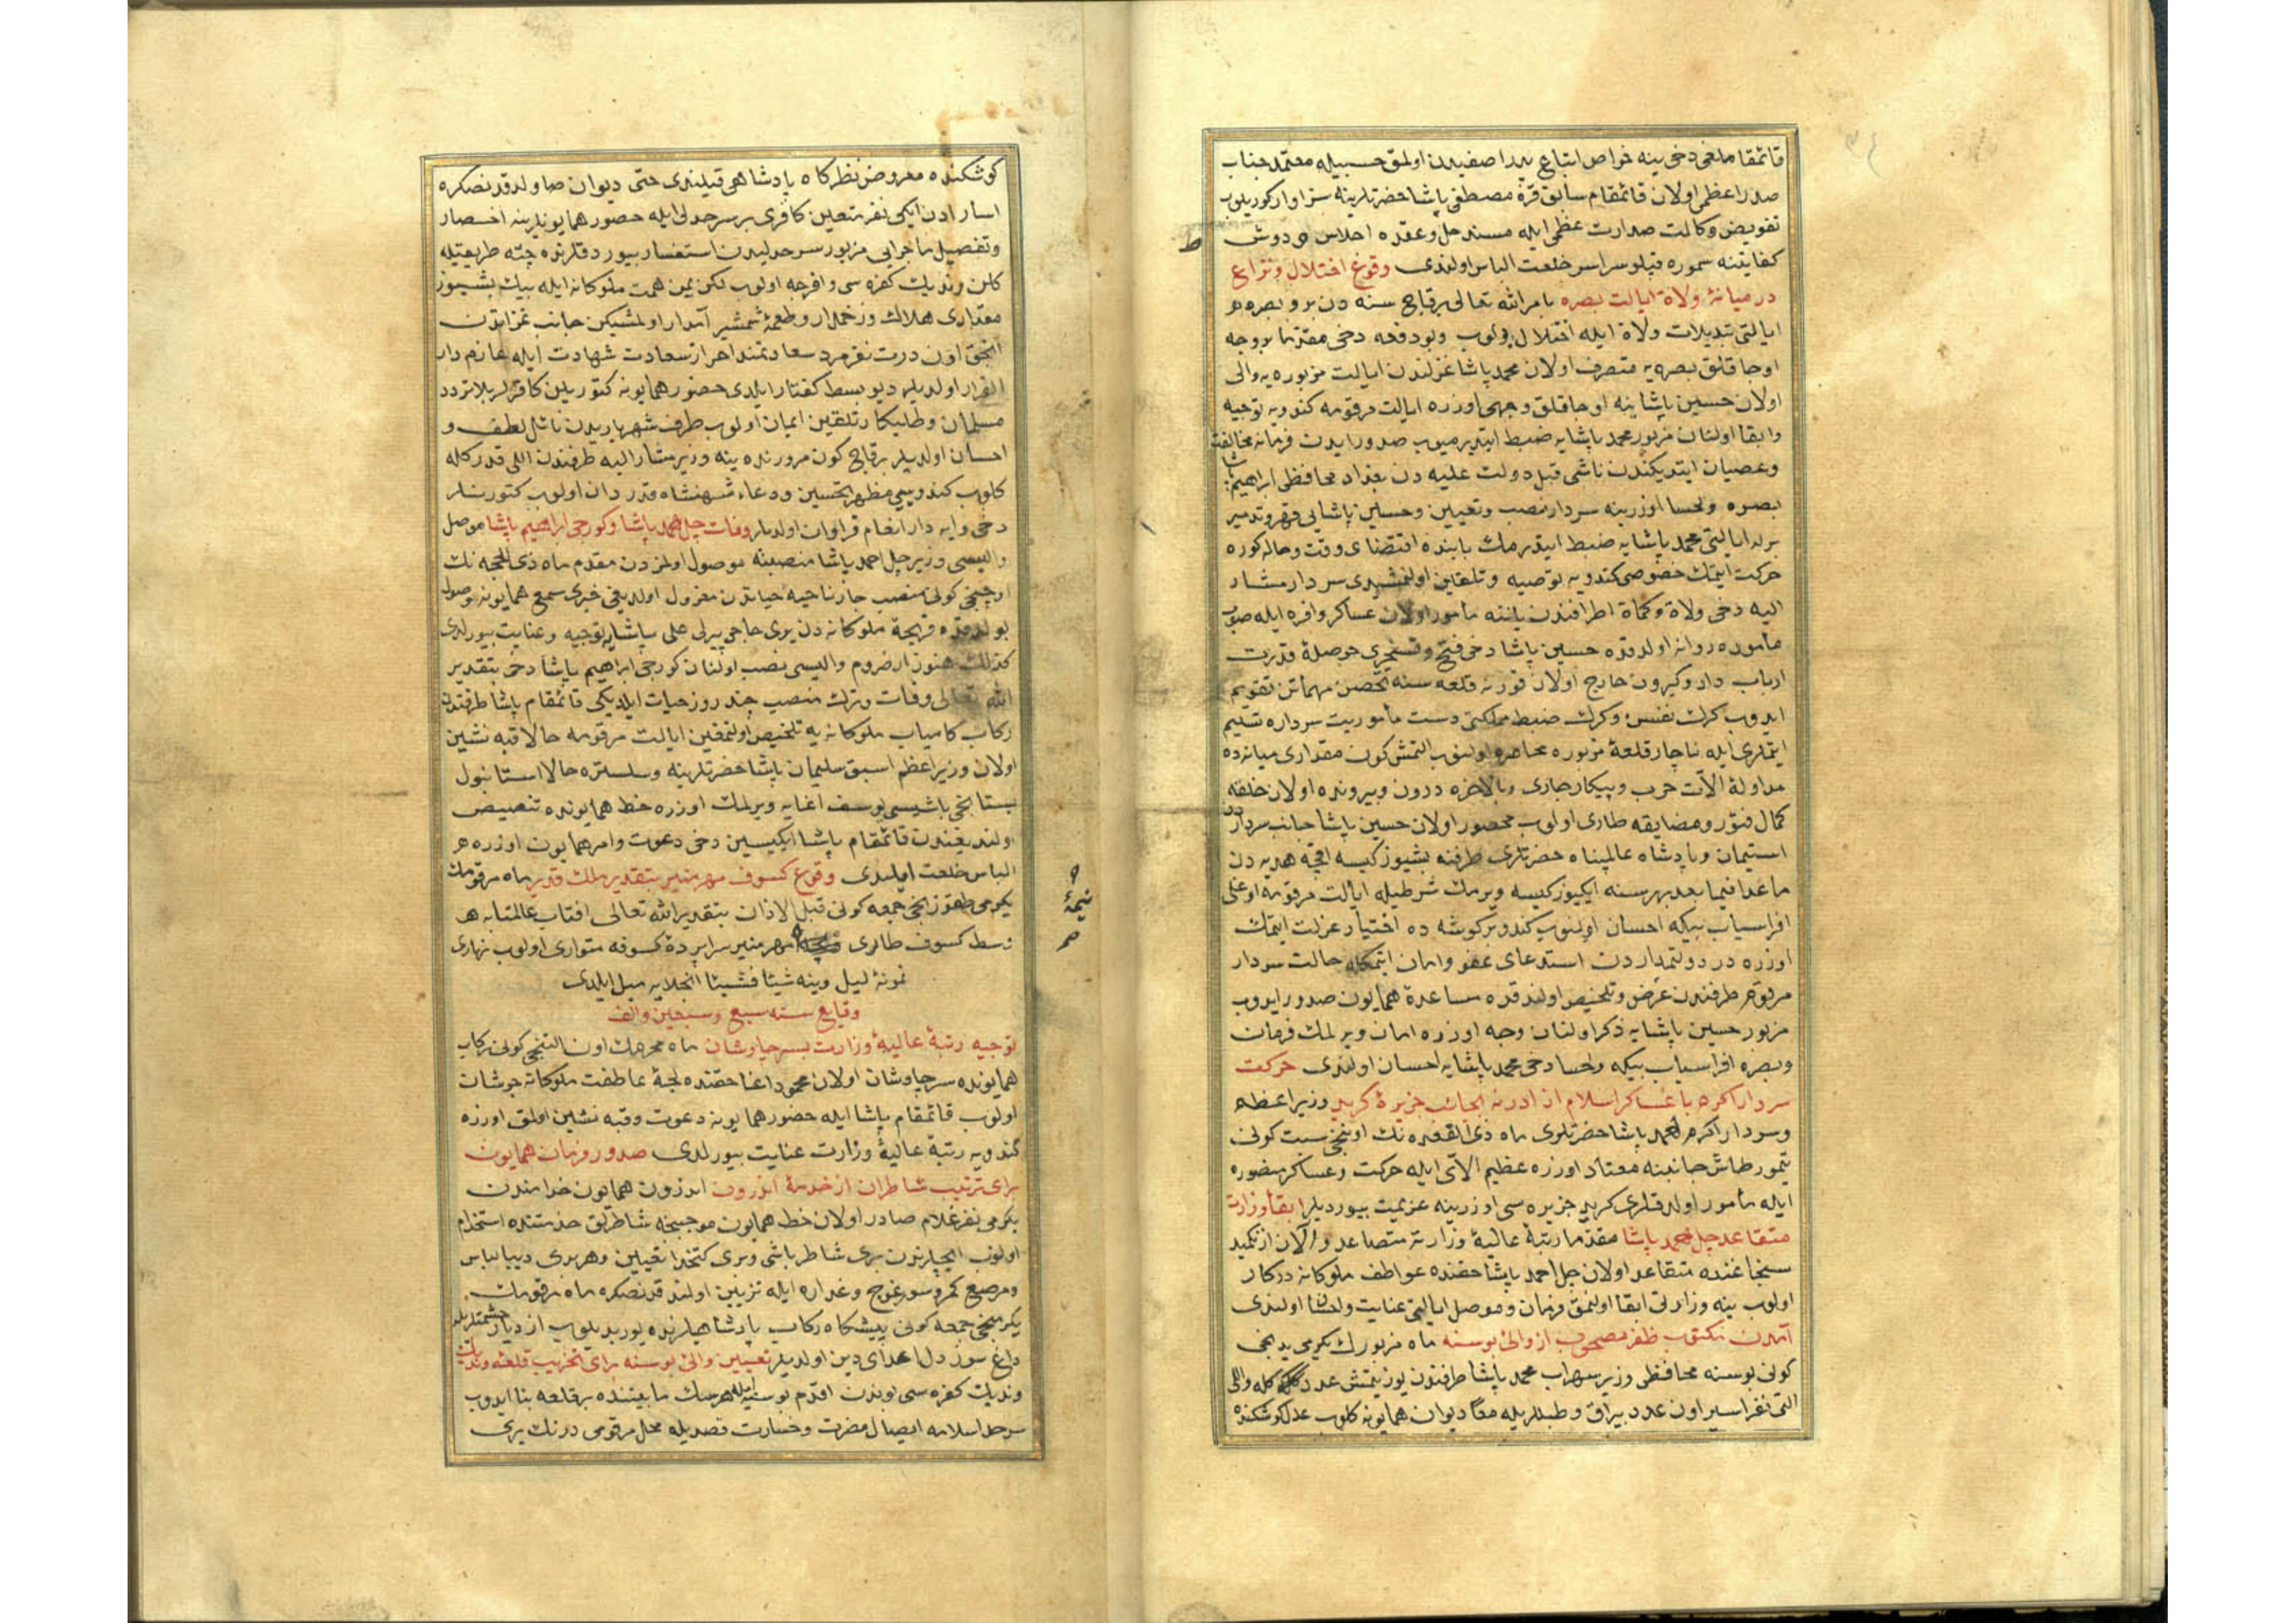 قائمقاملغی دخی ینه خواص اتباع بیدا صفیدن اولمق حسبیله معتمد جناب
صدراعظمی اولان قائمقام سابق قره مصطفی پاشا حضرتلرینه سزاوار کوریلوب
تفویض وکالت صدارت عظمی ایله مسند حل وعقده اجلاس و دوش
کفایتنه سموره قپلو سراسر خلعت الباس اولندی وقوع اختلال ونزاع
در میانهٔ ولاة ایالت بصره بامرالله تعالی برقاچ سنه دن برو بصره
ایالتی تبدیلات ولاة ایله اختلال بولوب وبودفعه دخی مقدما بروجه
اوجاقلق بصره یه متصرف اولان محمد پاشا عزلندن ایالت مزبوره یه والی
اولان حسین پاشا ینه اوجاقلق وجهی اوزره ایالت مرقومه کندویه توجیه
وابقا اولنان مزبور محمد پاشایه ضبط ایتدیرمیوب صدور ایدن فرمانه مخالفت
وعصیان ایتدیکندن ناشی قبل دولت علیه دن بغداد محافظی ابراهیم پاشا
بصره ولحسا اوزرینه سردار نصب وتعیین وحسین پاشایی قهر وتدمیر
برله ایالتی محمد پاشایه ضبط ایتدرمك بابنده اقتضای وقت وحاله کوره
حرکت ایتمك خصوصی کندویه توصیه وتلقین اولنمشیدی سردار مشار
الیه دخی ولاة وکماة اطرافندن یاننه مأمور اولان عساکر وافره ایله صوب
مأموره روانه اولدقده حسین پاشا دخی فتح وتسخیری حوصلهٔ قدرت
ارباب دار وکیرون خارج اولان قورنه قلعه سنه تحصن مهماتن تقویم
ایدوب کرك نفسن وکرك ضبط مملکتی دست مأموریت سرداره تسلیم
ایتملری ایله ناچار قلعهٔ مزبوره محاصره اولنوب التمش کون مقداری میانه ده
مداولهٔ الات حرب وپیکار جاری وبالاخره درون وبیرونده اولان خلقه
کمال فتور ومضایقه طاری اولوب محصور اولان حسین پاشا جانب سرداردن
استیمان وپادشاه عالمپناه حضرتلری طرفنه بشیوز کیسه اقچه هدیه دن
ماعدا فیما بعد بهر سنه ایکیوز کیسه ویرمك شرطیله ایالت مرقومه اوغلی
افراسیاب بیکه احسان اولنوب کندو بر کوشه ده اختیار عزلت ایتمك
اوزره در دولتمداردن استدعای عفو وامان ایتمکله حالت سردار
مرقوم طرفندن عرض وتلخیص اولندقده مساعدهٔ همایون صدور ایدوب
مزبور حسین پاشایه ذکر اولنان وجه اوزره امان ویرلمك فرمان
وبصره افراسیاب بیکه ولحسا دخی محمد پاشایه احسان اولندی حرکت
سردار اکرم با عساکر اسلام از ادرنه بجانب جزیرهٔ کرید وزیراعظم
وسردار اکرم احمد پاشا حضرتلری ماه ذی القعده نك اوننجی سبت کونی
تیمورطاش جانبنه معتاد اوزره عظیم الای ایله حرکت وعساکر منصوره
ایله مأمور اولدقلری کرید جزیره سی اوزرینه عزیمت بیوردیلر ابقاء وزارت
متقاعد چل احمد پاشا مقدما رتبهٔ عالیهٔ وزارته متصاعد والان ازنکمید
سنجاغنده متقاعد اولان چل احمد پاشا حقنده عواطف ملوکانه درکار
اولوب ینه وزارتی ابقا اولنمق فرمان وموصل ایالتی عنایت واحسان اولندی
آمدن مکتوب ظفر مصحوب از والئ بوسنه ماه مزبورك یکرمی یدنجی
کونی بوسنه محافظی وزیر سهراب محمد پاشا طرفندن یوز یتمش عدد کله واللی
التی نفر اسیر اون عدد بیراق وطبللریله معا دیوان همایونه کلوب عدل کوشکنده
کوشکنده معروض نظرکاه پادشاهی قیلندی حتی دیوان صاولدقدنصکره
اسارادن ایکی نفر متعین کافری بر سرحدلی ایله حضور همایونلرینه احضار
وتفصیل ماجرایی مزبور سرحدلیدن استفسار بیوردقلرنده چته طریقیله
کلن وندیك کفره سی وافرجه اولوب لکن یمن همت ملوکانه ایله بیك بشیوز
مقداری هلاك وزخمدار وطعمهٔ شمشیر آبدار اولمشیکن جانب غزاتدن
انجق اون درت نفر مرد سعادتمند احراز سعادت شهادت ایله عازم دار
القرار اولدیلر دیو بسط کفتار ایلدی حضور همایونه کتوریلن کافرلر بلاتردد
مسلمان وطلبکار تلقین ایمان اولوب طرف شهریاریدن نائل لطف و
احسان اولدیلر برقاچ کون مرورنده ینه وزیر مشارالیه طرفندن اللی قدر کله
کلوب کندوسی مظهر تحسین ودعاء شهنشاه قدردان اولوب کتورنلر
دخی وایه دار انعام فراوان اولدیلر وفات چل احمد پاشا وکورجی ابراهیم پاشا موصل
والیسی وزیر چل احمد پاشا منصبنه موصول اولمزدن مقدم ماه ذی الحجه نك
اوچنجی کونی منصب جازناحیهٔ حیاتدن معزول اولدیغی خبری سمع همایونه وصول
بولدقده قریحهٔ ملوکانه دن یری حاجی پیرلی علی پاشایه توجیه وعنایت بیورلدی
کذلك هنوز ارضروم والیسی نصب اولنان کورجی ابراهیم پاشا دخی بتقدیر
الله تعالی وفات وترك منصب چند روز حیات ایلدیکی قائمقام پاشا طرفندن
رکاب کامیاب ملوکانه یه تلخیص اولنمغین ایالت مرقومه حالا قبه نشین
اولان وزیراعظم اسبق سلیمان پاشا حضرتلرینه وسلستره حالا استانبول
بستانجی باشیسی یوسف اغایه ویرلمك اوزره خط همایونده تنصیص
اولندیغندن قائمقام پاشا ایکیسین دخی دعوت وامر همایون اوزره
الباس خلعت ایلدی وقوع کسوف مهر منیر بتقدیر ملك قدیر ماه مرقومك
یکرمی طقوزنجی جمعه کونی قبل الاذان بتقدیرالله تعالی افتاب عالمتابه
وسط کسوف طاری مهر منیر سراپردهٔ کسوفه متواری اولوب نهاری
نمونهٔ لیل وینه شیئا فشیئا انجلایه میل ایلدی
وقایع سنه سبع وسبعین والف
توجیه رتبهٔ عالیهٔ وزارت بسرچاوشان ماه محرمك اون التنجی کونی رکاب
همایونده سرچاوشان اولان محمود اغا حقنده لجهٔ عاطفت ملوکانه جوشان
اولوب قائمقام پاشا ایله حضور همایونه دعوت وقبه نشین اولمق اوزره
کندویه رتبهٔ عالیهٔ وزارت عنایت بیورلدی صدور فرمان همایون
برای ترتیب شاطران از خدمهٔ اندرون اندرون همایون خدامندن
یکرمی نفر غلام صادر اولان خط همایون موجبنجه شاطرلق خدمتنده استخدام
اولنوب ایچلرندن بری شاطرباشی وبری کتخدا تعیین وهربری دیبا لباس
ومرصع کمر وسورغوج وغداره ایله تزیین اولندقدنصکره ماه مرقومك
یکرمنجی جمعه کونی پیشکاه رکاب پادشاهیلرنده یوریدیلوب ازدیاد حشمتلریله
داغ سوز دل اعدای دین اولدیلر تعیین والئ بوسنه برای تخریب قلعهٔ وندیك
وندیك کفره سی بوندن اقدم بوسنه ایله هرسك مابیننده بر قلعه بنا ایدوب
سرحد اسلامه ایصال مضرت وخسارت قصدیله محل مرقومی درنك یری